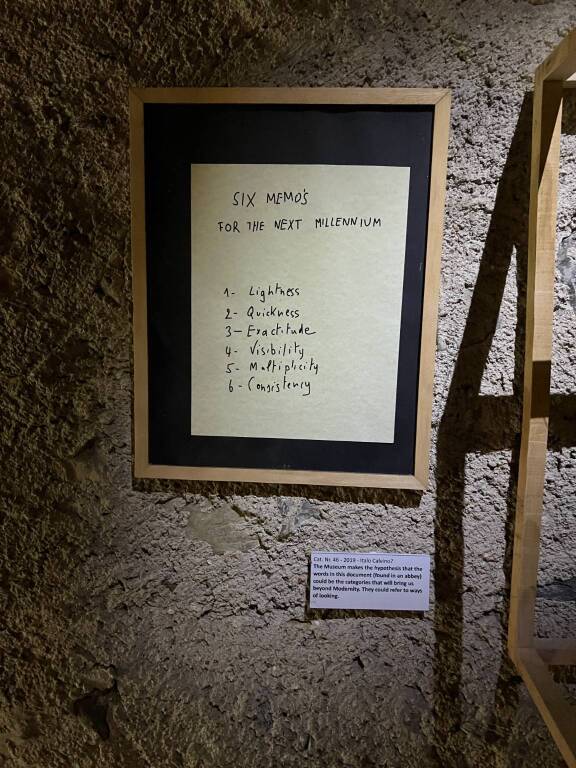 SIX MEMO'S
FOR THE NEXT MILLENNIUM
1- Lightness
2- Quickness
3- Exactitude
4- Visibility
5- Multiplicity
6- Consistency
Cat. Nr. 46 - 2019 - Italo Calvino?
The Museum makes the hypothesis that the
words in this document (found in an abbey)
could be the categories that will bring us
beyond Modernity. They could refer to ways
of looking.